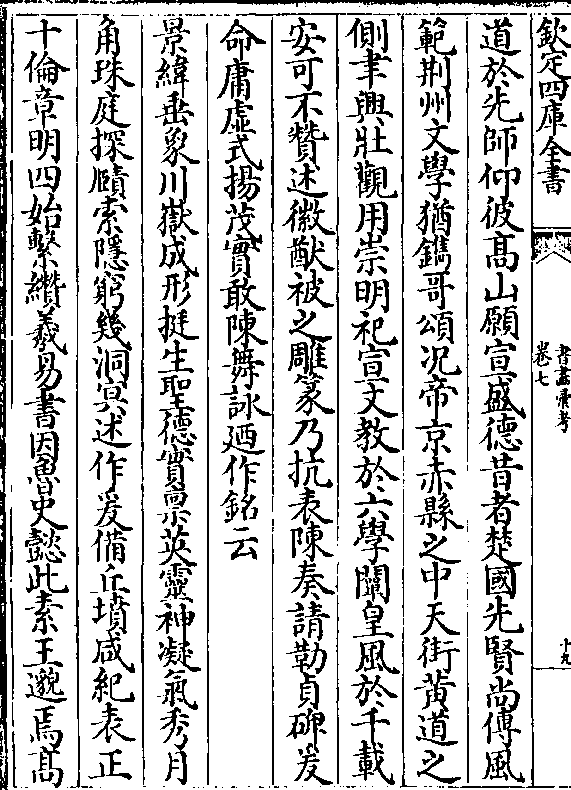 欽定四庫全書
書畫彙考
卷七
十九
道於先師仰彼高山願宣盛德昔者楚國先賢尚傳風
範荆州文學猶鐫哥頌况帝京赤縣之中天街黃道之
側聿興壯觀用崇明祀宣文教於六學闡皇風於千載
安可不贊述徽猷被之雕篆乃抗表陳奏請勒貞碑爰
命庸虛式揚茂實敢陳舞詠廼作銘云
景緯垂象川嶽成形挺生聖德實稟英靈神凝氣秀月
角珠庭探賾索隱窮幾洞㝠述作爰備丘墳咸紀表正
十倫章明四始繫纘羲易書因魯史懿此素王邈焉髙